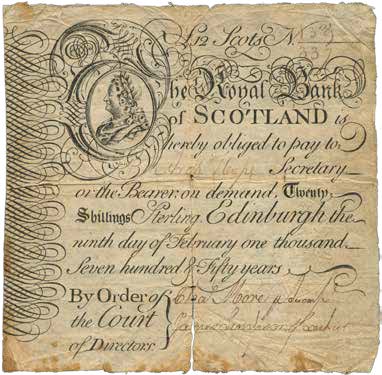 £12 Scots N.
The Royal Bank
of SCOTLAND is
hereby obliged to pay to
Secretary
or the Bearer, on demand, Twenty
Shillings Sterling. Edinburgh the
ninth day of February one thousand
Seven hundred & Fifty years
By Order of
the Court
of Directors